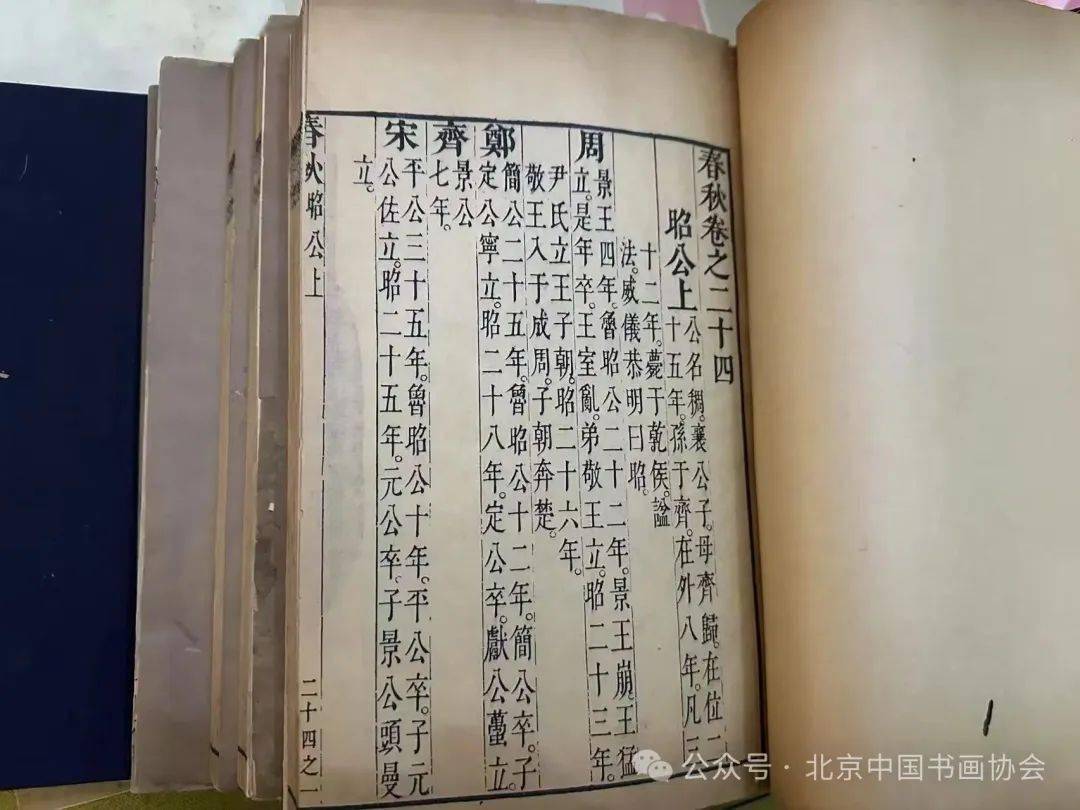 春秋卷之二十四
昭公上
公名稠。襄公子。母齊歸。在位二
十五年。孫于齊。在外八年。凡三
十二年。薨于乾侯。諡
法。威儀恭明曰昭。
周
景王四年。魯昭公二十二年。景王崩。王猛
立。是年卒。王室亂。弟敬王立。昭二十三年。
尹氏立王子朝。昭二十六年。
敬王入于成周。子朝奔楚。
鄭
簡公二十五年。魯昭公十二年。簡公卒。子
定公寧立。昭二十八年。定公卒。獻公蠆立。
齊
景公
七年。
宋
平公三十五年。魯昭公十年。平公卒。子元
公佐立。昭二十五年。元公卒。子景公頭曼
立。
春秋 昭公上 二十四之一
公众号 · 北京中国书画协会